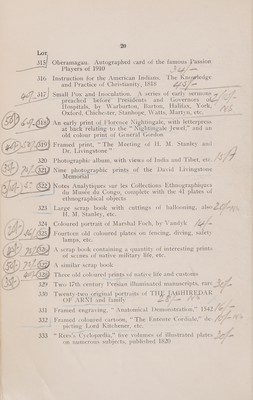 20
Lot
315 Oberamagau. Autographed card of the famous Passion
Players of 1910
316 Instruction for the American Indians. The Knowledge
and Practice of Christianity, 1816
317 Small Pox and Inoculation. A series of early sermons
preached before Presidents and Governors of
Hospitals, by Warburton, Barton, Halifax, York,
Oxford, Chichester, Stanhope, Watts, Martyn, etc.
318 An early print of Florence Nightingale, with interpreta
at back relating to the "Nightingale Jewel," and an
old colour print of General Gordon
319 Framed print, "The Meeting of H. M. Stanley and
Dr. Livingstone"
320 Photographic album, with views of India and Tibet, etc.
321 Nine photographic prints of the David Livingstone
Memorial
322 Notes Analytiques sur les Collections Ethnographiques
du Musée du Congo, complete with the 41 plates of
ethnographical objects
323 Large scrap book with cuttings of ballooning, also
H. M. Stanley, etc.
324 Coloured portrait of Marshal Foch, by Vandyk
325 Fourteen old coloured plates on fencing, diving, safety
lamps, etc.
326 A scrap book containing a quantity of interesting prints
of scenes of native military life, etc.
327 A similar scrap book
328 Three old coloured prints of native life and customs
329 Two 17th century Persian illuminated manuscripts, rare
330 Twenty-two original portraits of THE JAGHIREDAR
OF ARNI and family
331 Framed engraving, "Anatomical Demonstration," 1542
332 Framed coloured cartoon, "The Entente Cordiale," de
picting Lord Kitchener, etc.
333 "Rees's Cyclopædia," five volumes of illustrated plates
on numerous subjects, published 1820